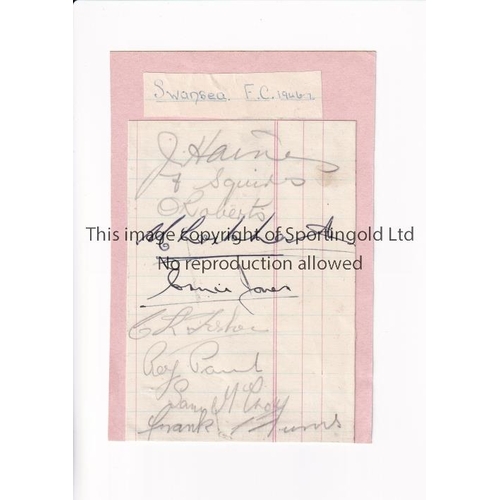 Swansea. F.C. 1946-7
J. Haines
F Squires
O Roberts
This image copyright of Sportingold Ltd
No reproduction allowed
Ernie Jones
Roy Paul
Sam McCrory
Frank Burns